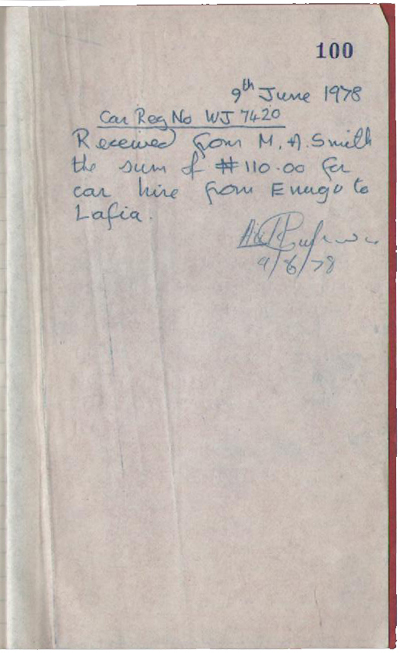 100
9th June 1978
Car Reg No WJ 7420
Received from M. A. Smith
the sum of ₦110.00 for
car hire from Enugu to
Lafia.
9/6/78